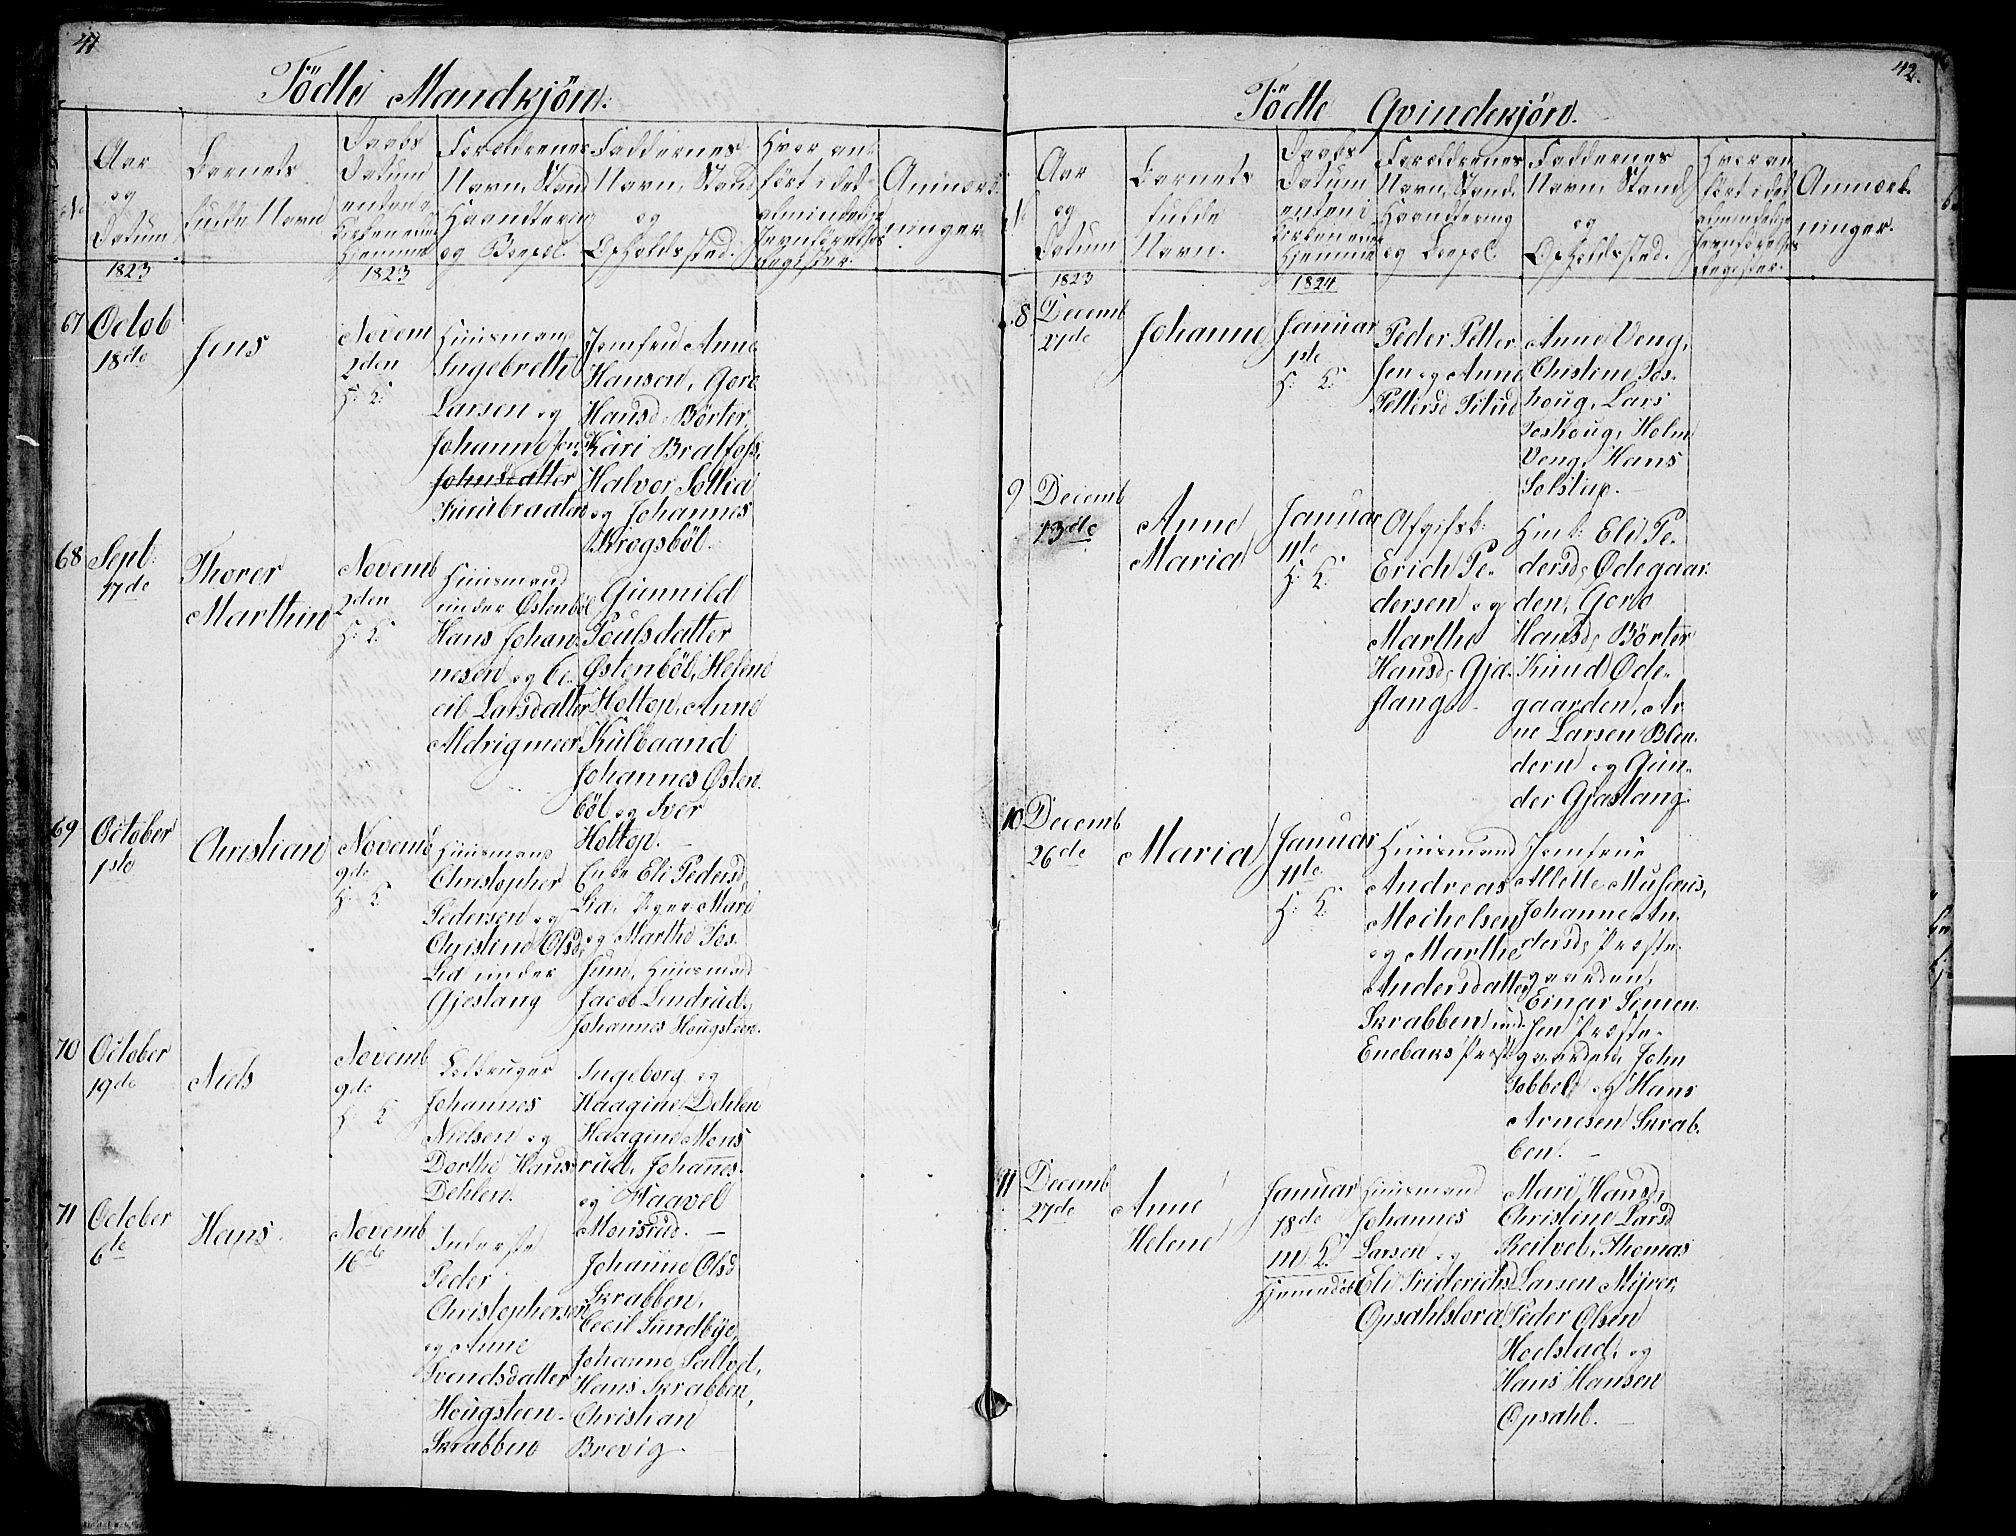 41
Födte Mandkjön:
No
Aar
og
Datum
1823
Barnets
fulde Navn
Daabs
Datum
enten i
Kirken eller
Hjemme
1823
Foreldrenes
Navn, Stand
Haandtering
og Boepel.
Faddernes
Navn, Stand
og
Opholdssted.
Hvor an
fört i det
almindelige
Jevnförelses
Register.
Anmærk
ninger
67
Octob
18de
Jens
Novem
2den
H: K:
Huusmand
Ingebreth
Larsen og
Johanne Jen
Johnsdatter
Kuubraaten
Jomfru Anne
Hansen, Goro
Hansd. Börter,
Kari Bratfoss,
Halvor Sollia
og Johannes
Krogsböl.
68
Sept:
17de
Thorer
Marthin
Novemb
2den
H: K:
Huusmand
under Østenböl
Hans Johan
nesen og Ce
cil Larsdatter
Aldrigmeer
Gunnild
Poulsdatter
Østenböl, Helene
Holtop, Anne
Kulbaand
Johannes Østen
böl og Iver
Holtop.
69
October
1ste
Christian
Novemb
9de
H: K:
Huusmand
Christopher
Pedersen og
Christine Olsd.
Lid under
Gjestang
Enke Eli Pedersd
Lid, Piger Mari
og Marthe Tos
sum, Huusmand
Jacob Lindrud,
Johannes Hougsteen.
70
October
19de
Niels
Novemb
9de
H: K
Johannes
Nielsen og
Dorthe Hans:
Dehlen.
Ingeborg og
Haagine Dehlen
Haagine Mons
rud, Johannes
og Haavel
Monsrud.
71
October
6te
Hans.
Novemb
16de
Inderste
Peder
Christophersen
og Anne
Svendsdatter
Hougsteen
Skrabben
Johanne Olsd
Skrabben,
Cecil Sundbye,
Johanne Saltvet,
Hans Skrabben,
Christian
Brevig.
42.
Födte Qvindekjön.
Aar
og
Datum
1823
Barnets
fulde
Navn.
Daabs
Datum
enten i
Kirken eller
Hjemme
1824
Foreldrenes
Navn, Stand
Haandtering
og Boepel
Faddernes
Navn, Stand
og
Opholdssted.
Hvor an
fört i det
almindelige
Jevnförelses
Register.
Anmærk
ninger.
8
Decemb
27de
Johanne
Januar
1ste
H: K:
Peder Petter
sen og Anne
Pettersd
Anne Veng,
Chistine Tos
houg, Lars
Toshoug, Holm
Veng, Hans
Solstup.
9
Decemb
13de
Anne
Maria
Januar
11te
H: K:
Erich Pe
dersen og
Marthe
Hansd. Gjd
stang
Eli Pe
dersd. Ødegaar
den, Goro
Hansd. Börter
Knud Øde
gaarden, Ar
ne Larsen Blen
dern og Gun
der Gjastang.
10
Decemb
26de
Maria
Januar
11te
H: K:
Huusmand
Andreas
Mechelsen
og Marthe
Andersdatter
Skrabben und
Enebaks Præst
Jomfrue
Allette Musæus,
Johanne An
dersd. Præste
gaarden,
Einar Simen
sen Præste
gaarden, John
Tobbel og Hans
Arnesen Skrab
ben.
11
Decemb
27de
Anne
Helene
Januar
18de
m K:
Hjemmedöbt
Huusmand
Johannes
Larsen og
Eli Friderichsd
Opsahlslora
Mari Hansd,
Christine Larsd
Reitvet, Thomas
Larsen Myrer,
Peder Olsen
Hodstad, og
Hans Hansen
Opsahl.